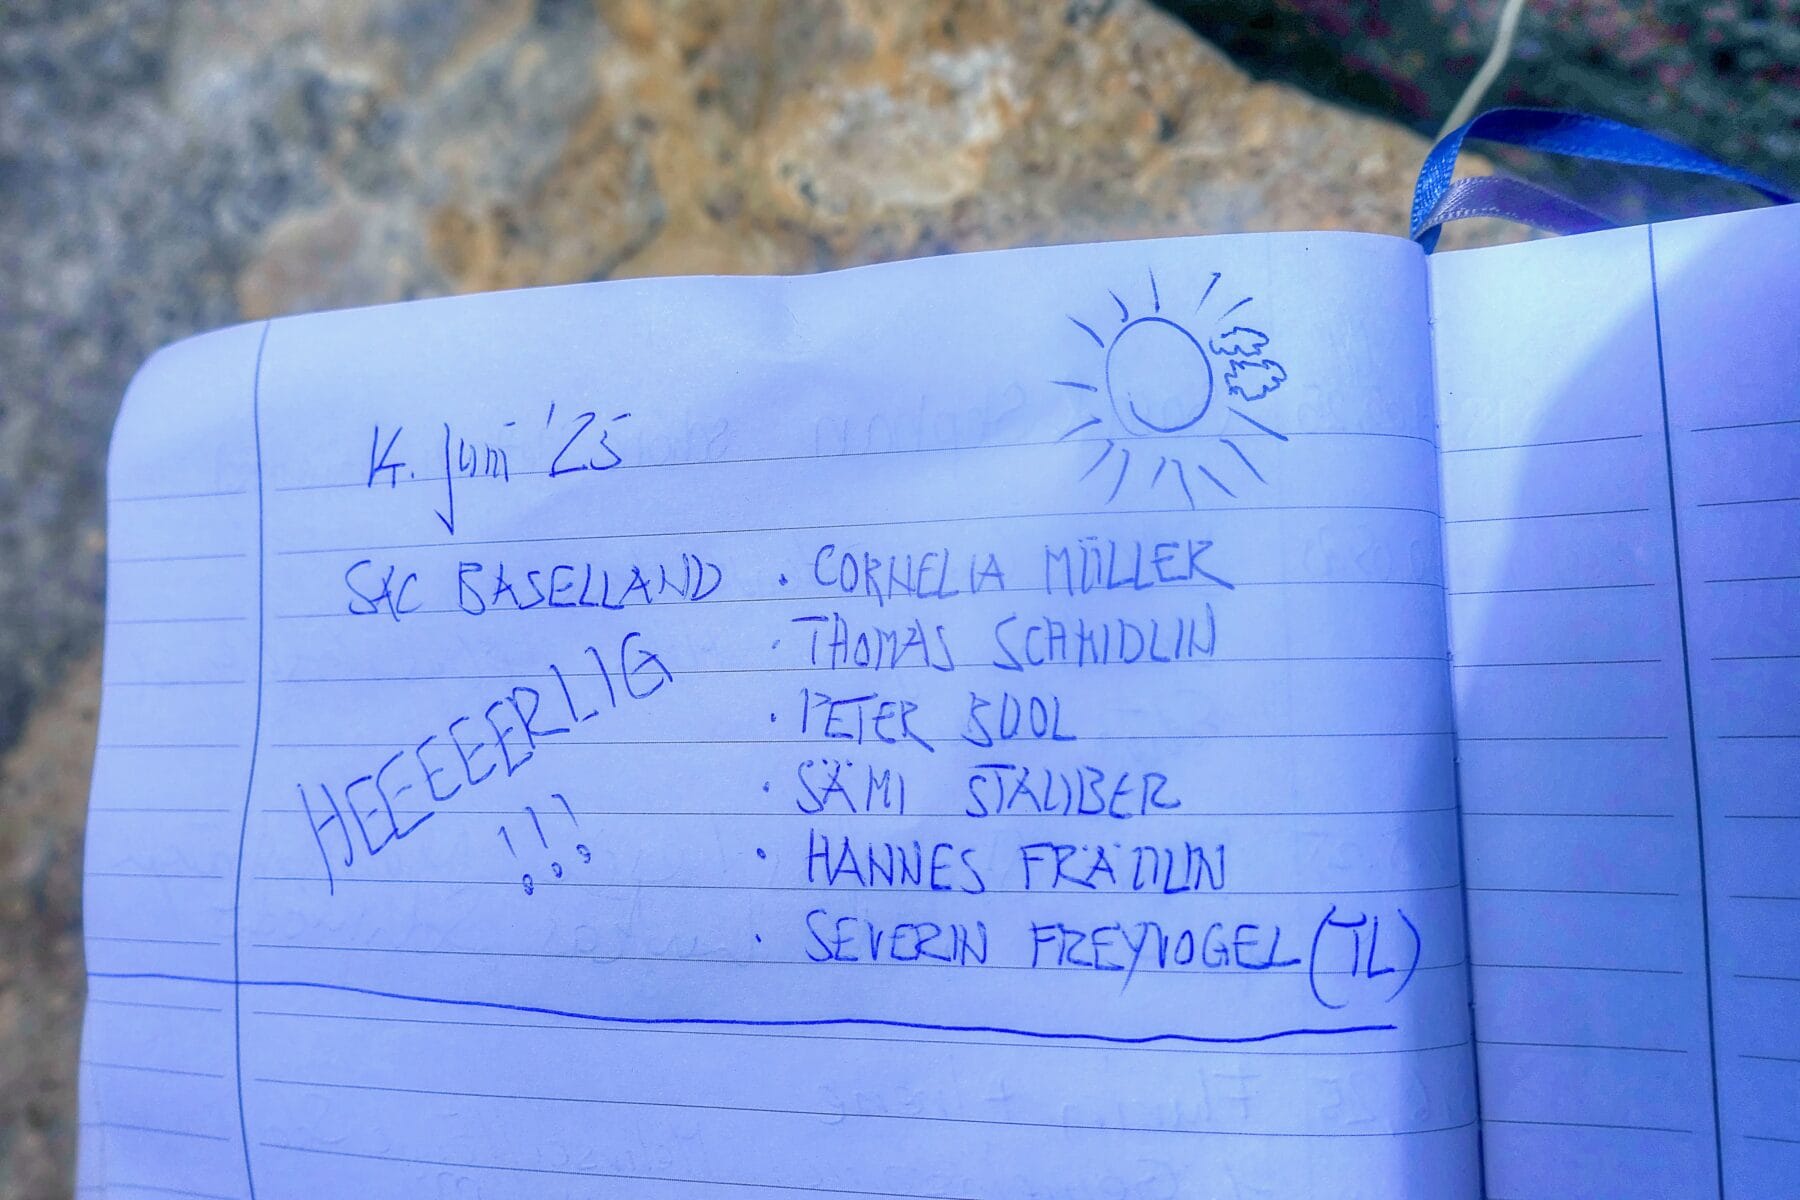 14. Juni '25
SAC BASELLAND
HEEEEERLIG
!!!
· CORNELIA MÜLLER
· THOMAS SCHMIDLIN
· PETER
· SÄMI STÄUBER
· HANNES
· SEVERIN FREYVOGEL (TL)